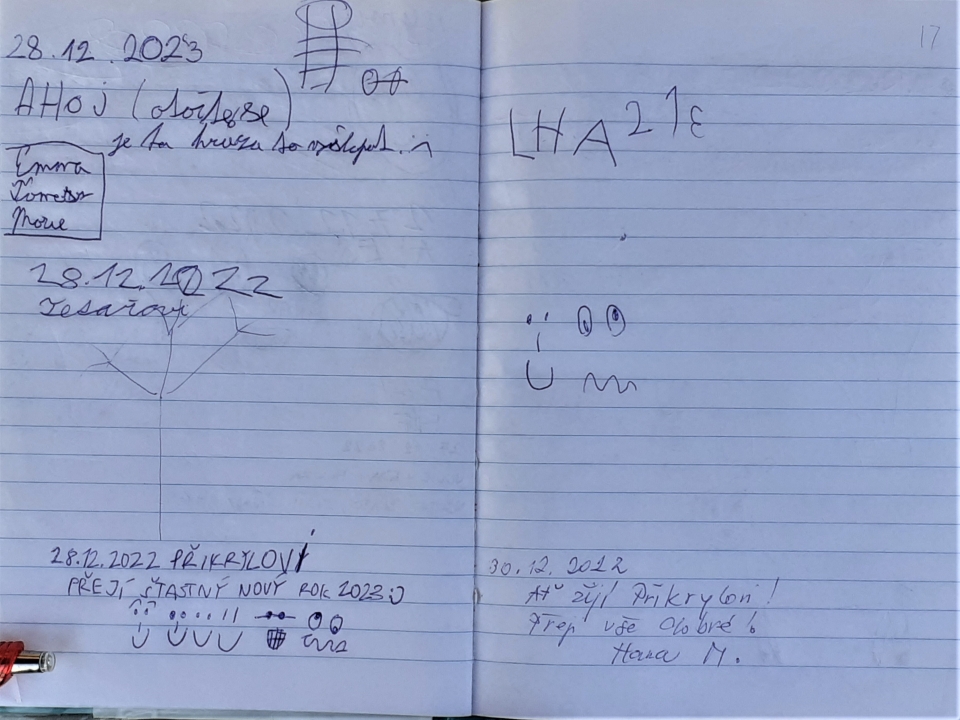 28.12.2023
AHOJ (otočte se)
je ta hruza to vyšlapat :n
Emma
28.12.2022
Tesařovi
28.12.2022 PŘIKRYLOVI
PŘEJÍ ŠŤASTNÝ NOVÝ ROK 2023 :)
17
30.12.2022
Ať žijí Přikrylovi!
Přeji vše dobré!
Hana M.